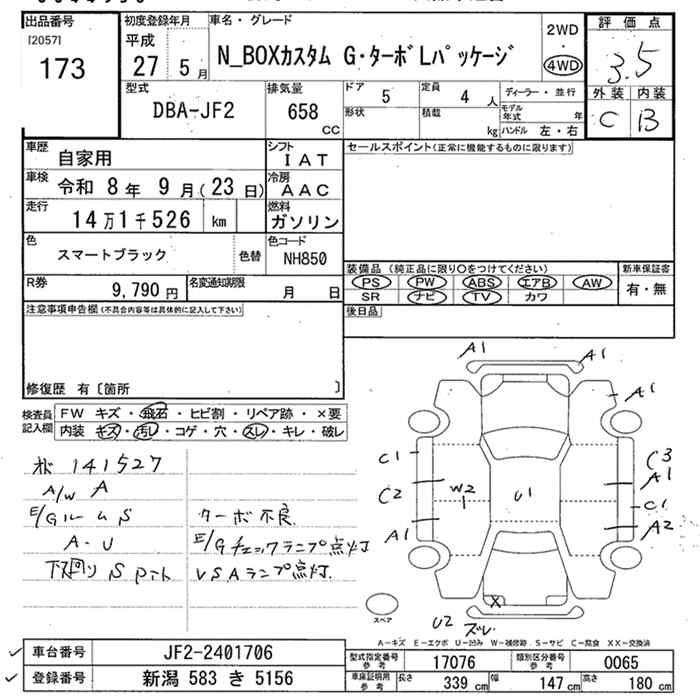 出品番号
[2057]
173
初度登録年月
平成
27 5月
車名・グレード
N_BOXカスタム G・ターボLパッケージ
2WD
・
4WD
評価点
3.5
外装 内装
C B
型式
DBA-JF2
排気量
658
CC
ドア 5
定員 4 人
形状
積載 kg
ディーラー・並行
モデル年式 年
ハンドル 左・右
車歴 自家用
シフト IAT
セールスポイント(正常に機能するものに限ります)
車検 令和 8年 9月(23日)
冷房 AAC
走行 14万1千526 km
燃料 ガソリン
色 スマートブラック
色替
色コード NH850
装備品 (純正品に限り○をつけてください)
新車保証書
PS PW ABS エアB AW
有・無
SR ナビ TV カワ
R券 9,790円
名変通知期限 月 日
後日品
注意事項申告欄(不具合内容等は具体的に記入して下さい)
修復歴 有〔箇所 〕
検査員記入欄
FW キズ・飛石・ヒビ割・リペア跡・×要
内装 キズ・汚レ・コゲ・穴・スレ・キレ・破レ
141527
A/W A
E/Gルーム S
A-U
下回り S
ターボ不良
E/Gチェックランプ点灯
VSAランプ点灯.
A1 A1
A1
C1 C3
A1
C2 W2 U1 C1
A1 A2
X
スペア
U2 ズレ
A-キズ E-エクボ U-凹み W-補修跡 S-サビ C-腐食 XX-交換済
車台番号 JF2-2401706
型式指定番号 参考 17076
類別区分番号 参考 0065
登録番号 新潟 583 き 5156
車庫証明用 参考
長さ 339 cm
幅 147 cm
高さ 180 cm